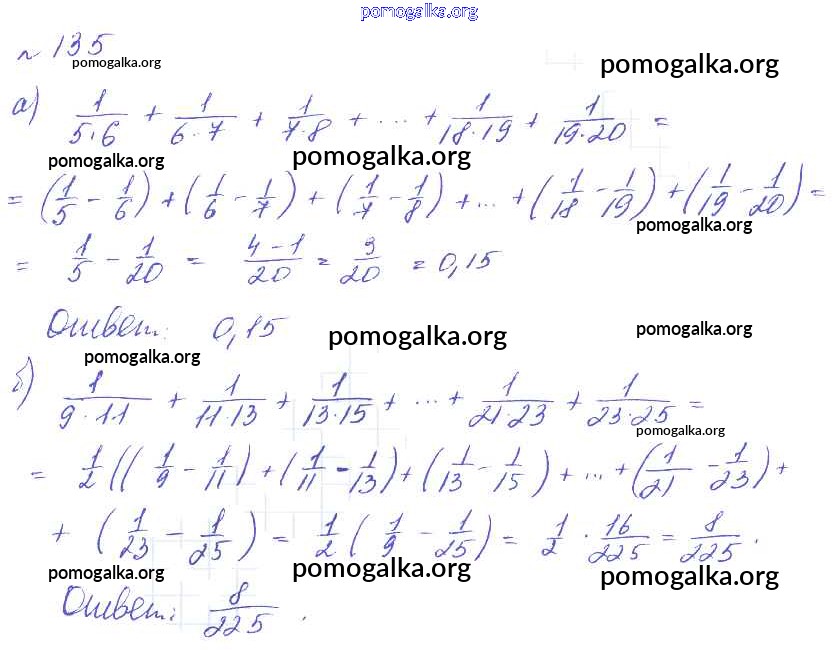 pomogalka.org
№ 135
pomogalka.org pomogalka.org
а) 1/(5·6) + 1/(6·7) + 1/(7·8) + ... + 1/(18·19) + 1/(19·20) =
pomogalka.org pomogalka.org
= (1/5 − 1/6) + (1/6 − 1/7) + (1/7 − 1/8) + ... + (1/18 − 1/19) + (1/19 − 1/20) =
pomogalka.org
= 1/5 − 1/20 = (4−1)/20 = 3/20 = 0,15
Ответ: 0,15
pomogalka.org pomogalka.org
pomogalka.org
б) 1/(9·11) + 1/(11·13) + 1/(13·15) + ... + 1/(21·23) + 1/(23·25) =
pomogalka.org
= 1/2 ((1/9 − 1/11) + (1/11 − 1/13) + (1/13 − 1/15) + ... + (1/21 − 1/23) +
+ (1/23 − 1/25) = 1/2 (1/9 − 1/25) = 1/2 · 16/225 = 8/225.
pomogalka.org pomogalka.org pomogalka.org
Ответ: 8/225.